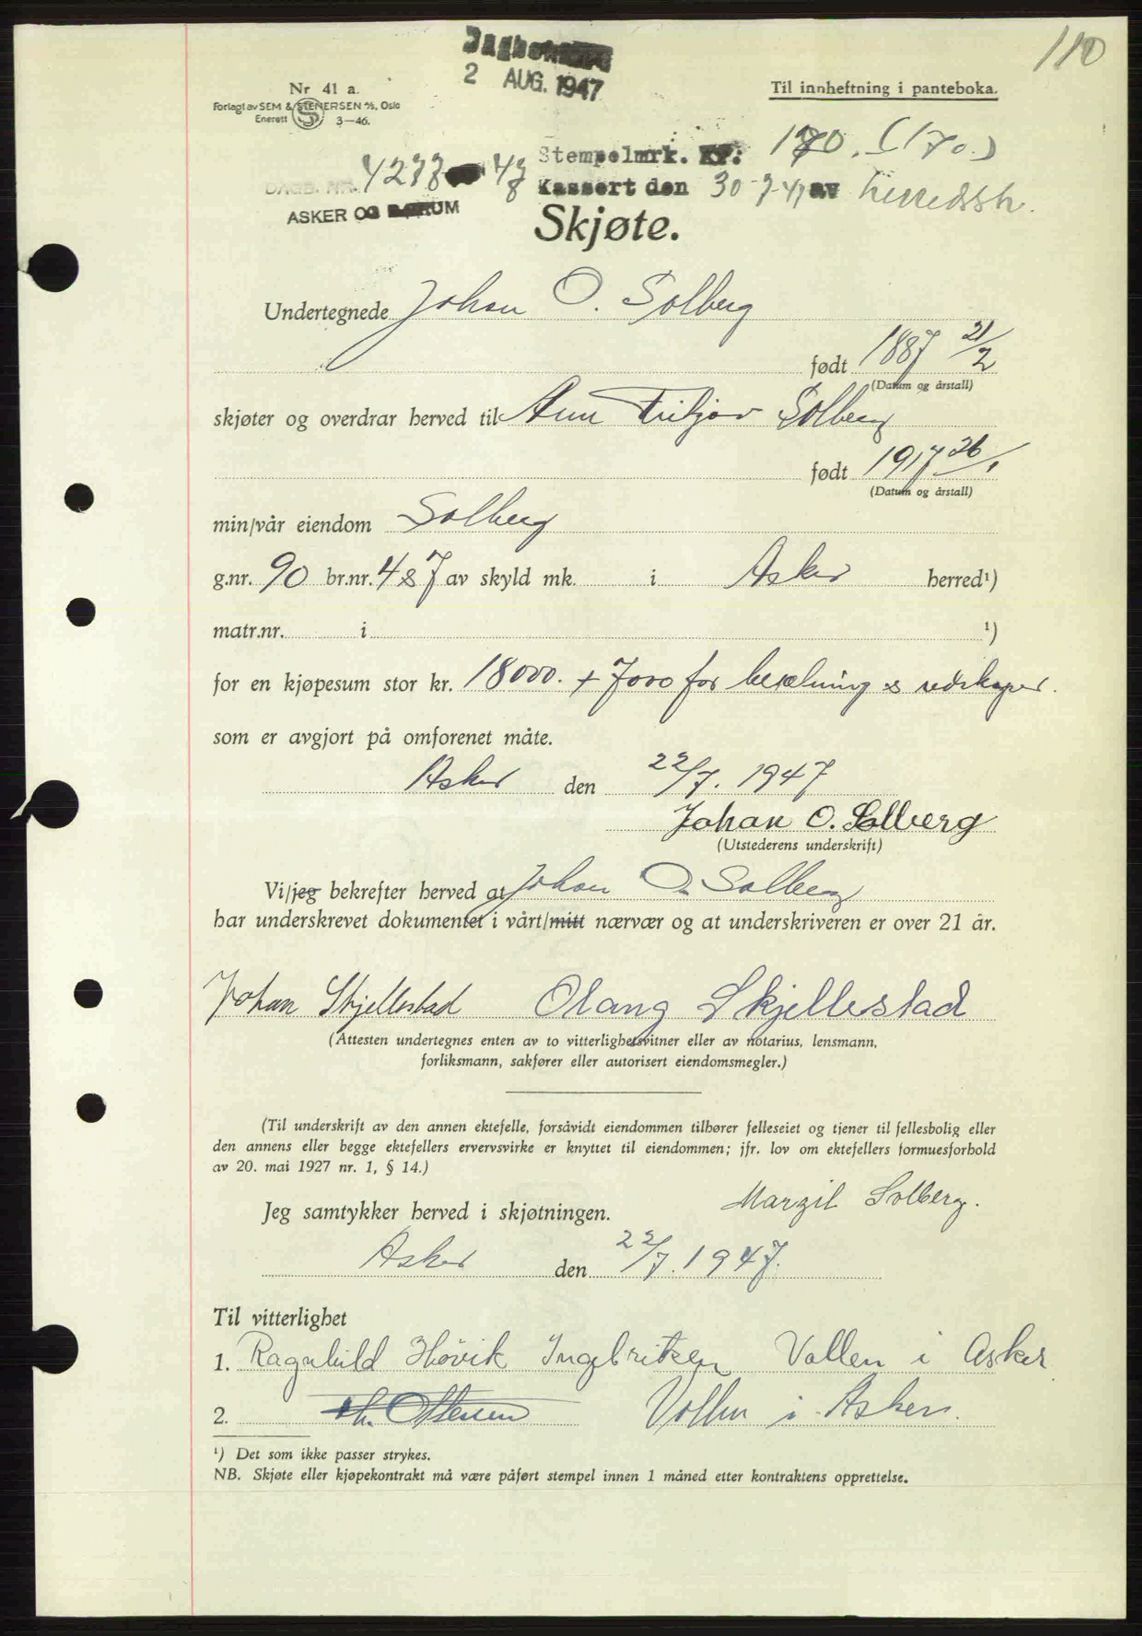 110
Dagbokført
2 AUG. 1947
Nr 41 a.
Forlagt av SEM & STENERSEN A/S, Oslo
Enerett 3-46.
Til innheftning i panteboka.
Stempelmrk. kr: 170. (170.)
DAGB. NR. 4273 47
8
Kassert den 30-7-47 av herredsskr.
ASKER OG BÆRUM
Skjøte.
Undertegnede Johan O. Solberg
født 1887 21/2
(Datum og årstall)
skjøter og overdrar herved til Solberg
født 1917 26/1
(Datum og årstall)
min/vår eiendom Solberg
g.nr. 90 br.nr. 4 & 7 av skyld mk. i Asker herred¹)
matr.nr. i ¹)
for en kjøpesum stor kr. 18000. + 7000 for besetning & redskaper.
som er avgjort på omforenet måte.
Asker den 22/7. 1947
Johan O. Solberg
(Utstederens underskrift)
Vi/jeg bekrefter herved at Johan O. Solberg
har underskrevet dokumentet i vårt/mitt nærvær og at underskriveren er over 21 år.
Johan Skjellestad Olaug Skjellestad
(Attesten undertegnes enten av to vitterlighetsvitner eller av notarius, lensmann,
forliksmann, sakfører eller autorisert eiendomsmegler.)
(Til underskrift av den annen ektefelle, forsåvidt eiendommen tilhører felleseiet og tjener til fellesbolig eller
den annens eller begge ektefellers ervervsvirke er knyttet til eiendommen; jfr. lov om ektefellers formuesforhold
av 20. mai 1927 nr. 1, § 14.)
Jeg samtykker herved i skjøtningen. Margit Solberg.
Asker den 22/7. 1947.
Til vitterlighet
1. Ragnhild Høvik Ingebritsen Vollen i Asker
2. Ottesen Vollen i Asker.
¹) Det som ikke passer strykes.
NB. Skjøte eller kjøpekontrakt må være påført stempel innen 1 måned etter kontraktens opprettelse.